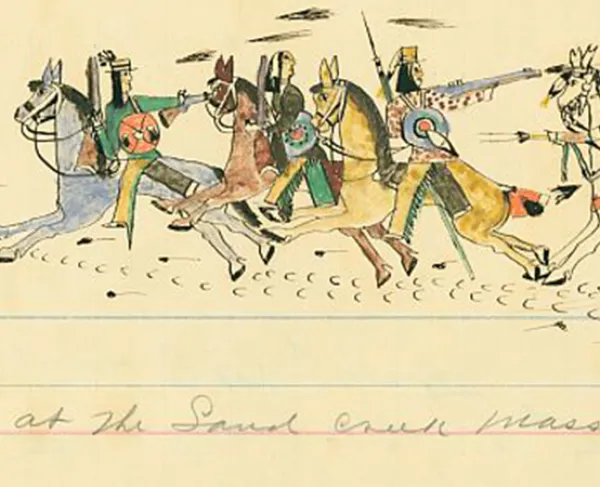 at the Sand Creek Mass